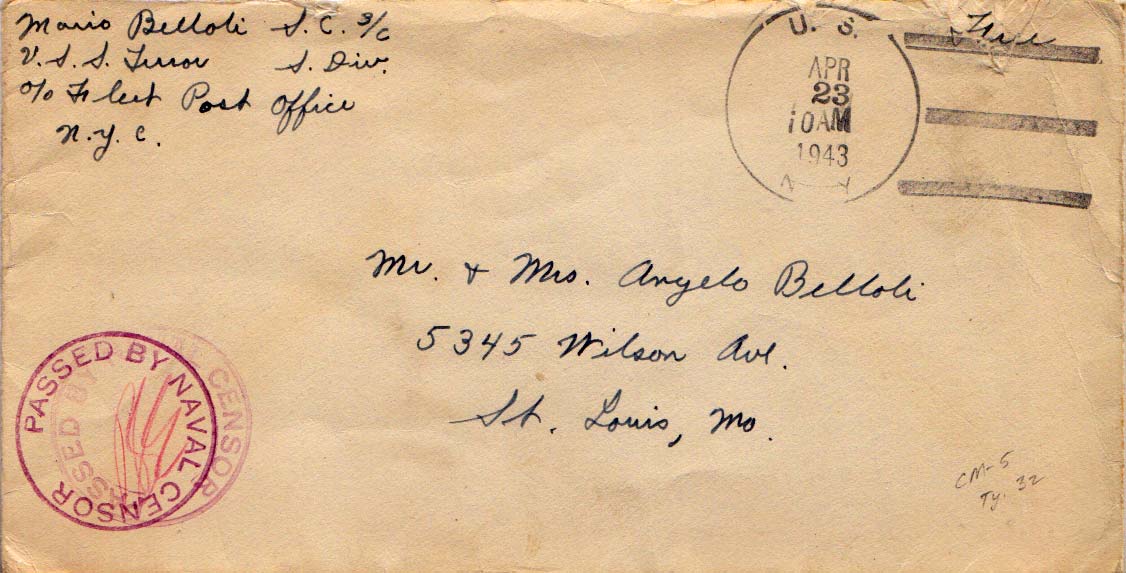 Mario Belloli S.C. 3/c
U.S.S. Terror S. Div.
c/o Fleet Post Office
N.Y.C.
U. S.
APR
23
10 AM
1943
N Y
Free
Mr. + Mrs. Angelo Belloli
5345 Wilson Ave.
St. Louis, Mo.
PASSED BY NAVAL CENSOR
CM-5
Ty. 32